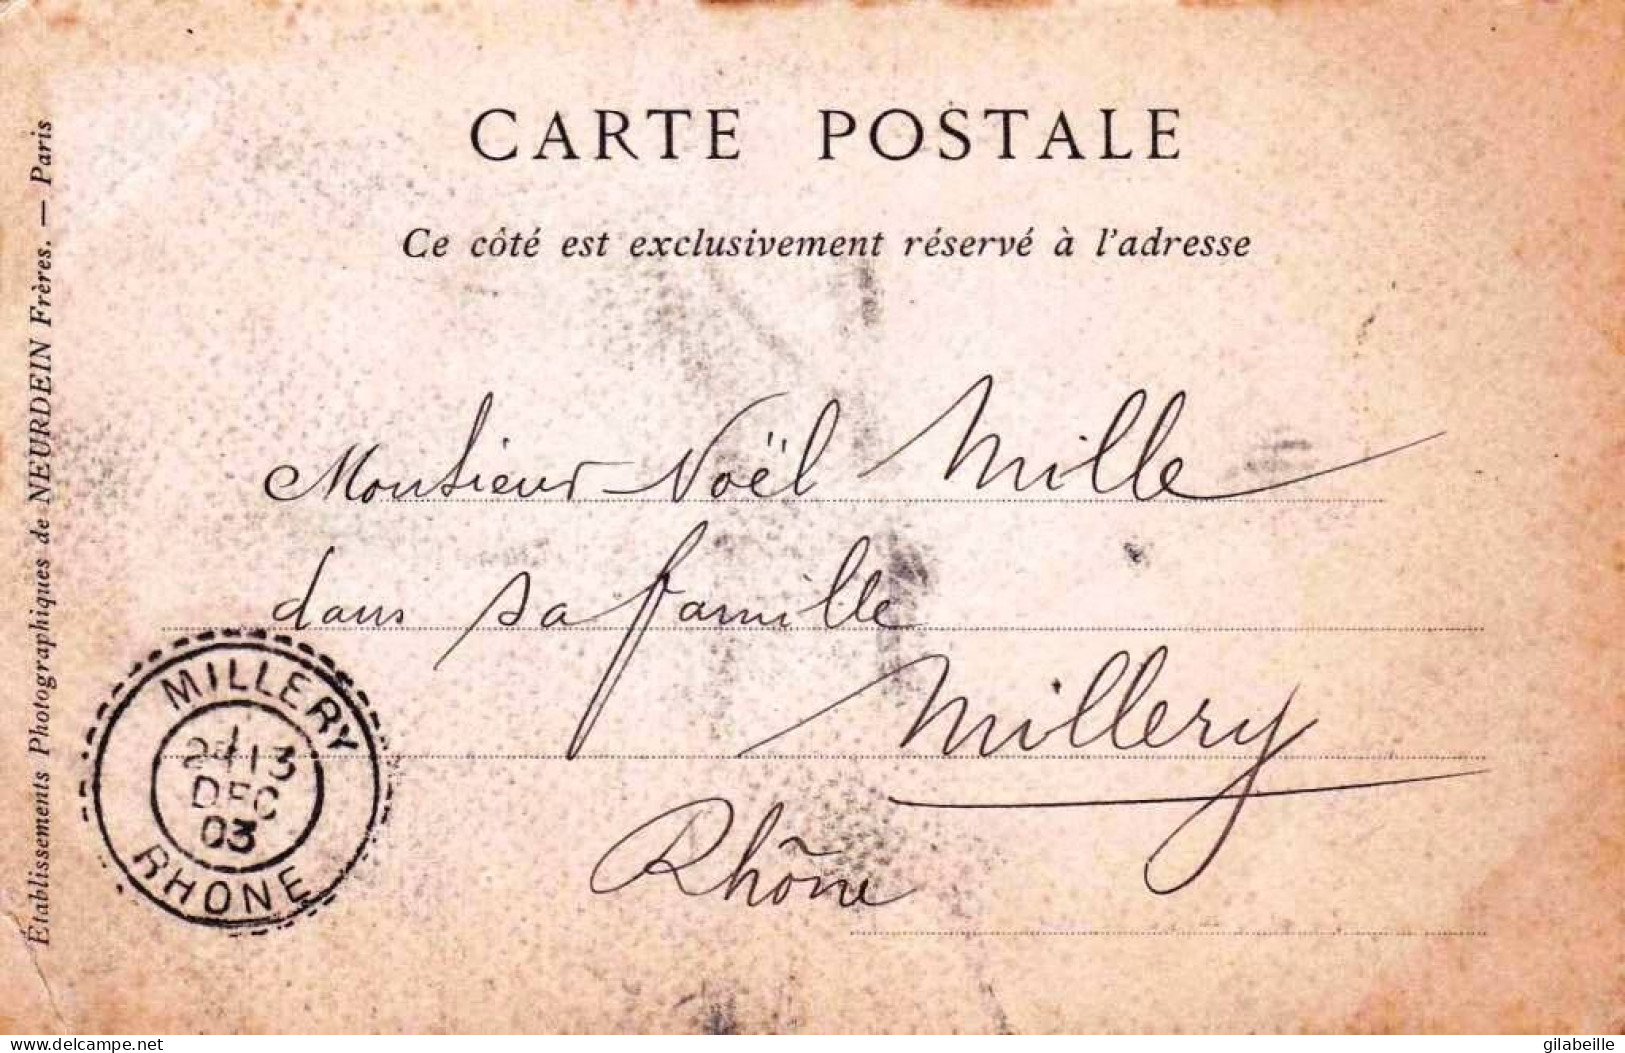 CARTE POSTALE
Ce côté est exclusivement réservé à l'adresse
Établissements Photographiques de NEURDEIN Frères. — Paris
Monsieur Noël Mille
dans sa famille
Millery
Rhône
MILLERY
13
DEC
03
RHONE
delcampe.net
gilabeille